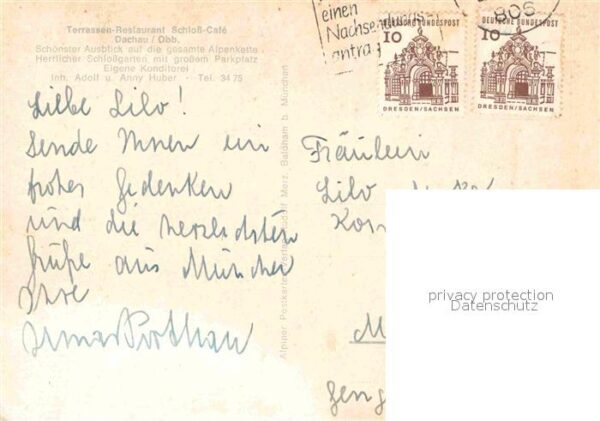 Terrassen-Restaurant Schloß-Café
Dachau / Obb.
Schönster Ausblick auf die gesamte Alpenkette
Herrlicher Schloßgarten mit großem Parkplatz
Eigene Konditorei
Inh. Adolf u. Anny Huber - Tel. 34 75
Liebe Lilo!
Sende Ihnen ein
frohes Gedenken
und die herzlichsten
Grüße aus München
Ihre
Alpiner Postkarten-Verlag Rudolf Merz, Baldham b. München
einen
Nachsendungs
antrag
805
DEUTSCHE BUNDESPOST
10
DRESDEN/SACHSEN
DEUTSCHE BUNDESPOST
10
DRESDEN/SACHSEN
Fräulein
Lilo
privacy protection
Datenschutz